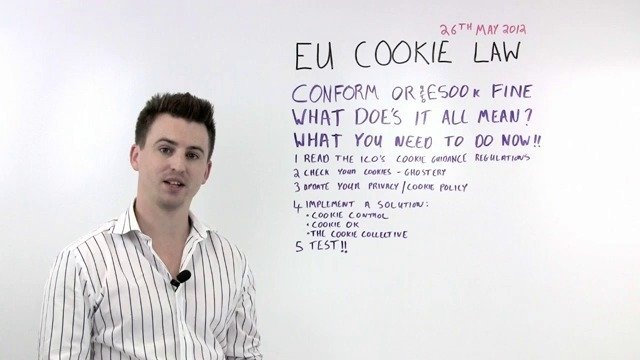 26TH MAY 2012
EU COOKIE LAW
CONFORM OR £500K FINE
WHAT DOE'S IT ALL MEAN?
WHAT YOU NEED TO DO NOW!!
1 READ THE ICO'S COOKIE GUIDANCE REGULATIONS
2 CHECK YOUR COOKIES - GHOSTERY
3 UPDATE YOUR PRIVACY/COOKIE POLICY
4 IMPLEMENT A SOLUTION:
• COOKIE CONTROL
• COOKIE OK
• THE COOKIE COLLECTIVE
5 TEST!!